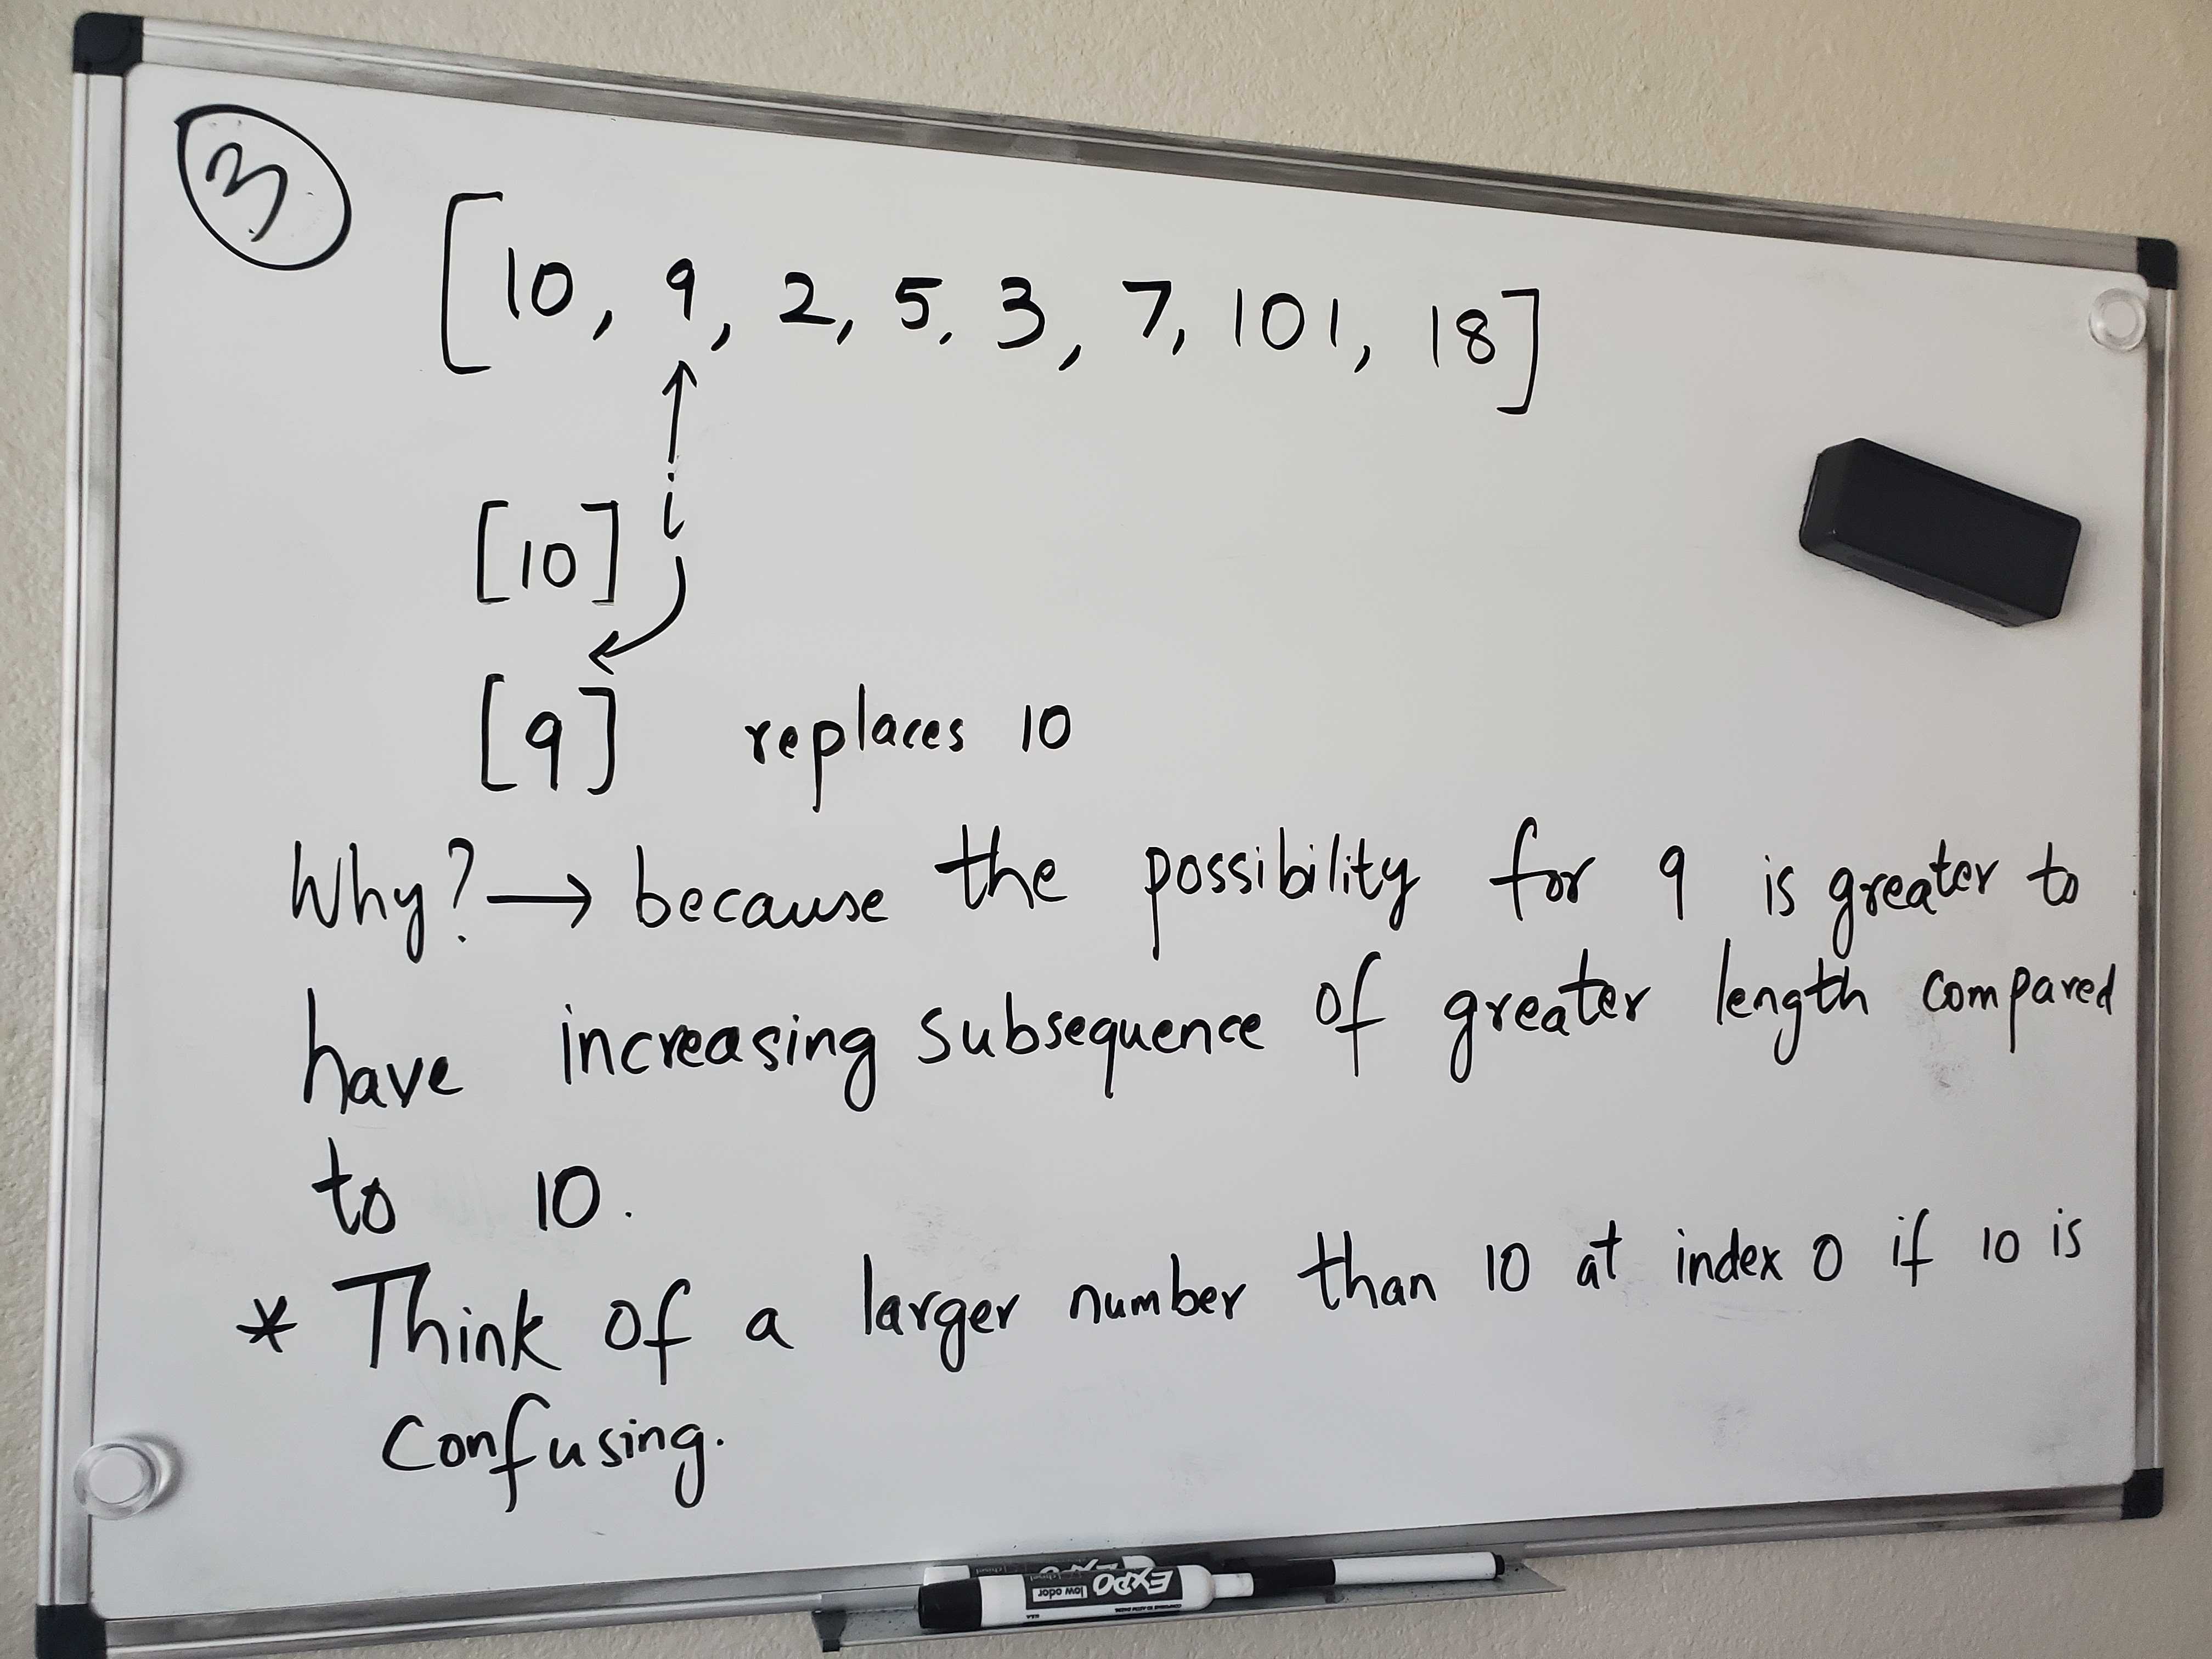 3
[10, 9, 2, 5, 3, 7, 101, 18]
i
[10]
[9] replaces 10
Why? → because the possibility for 9 is greater to
have increasing subsequence of greater length compared
to 10.
* Think of a larger number than 10 at index 0 if 10 is
confusing.
EXPO
low odor